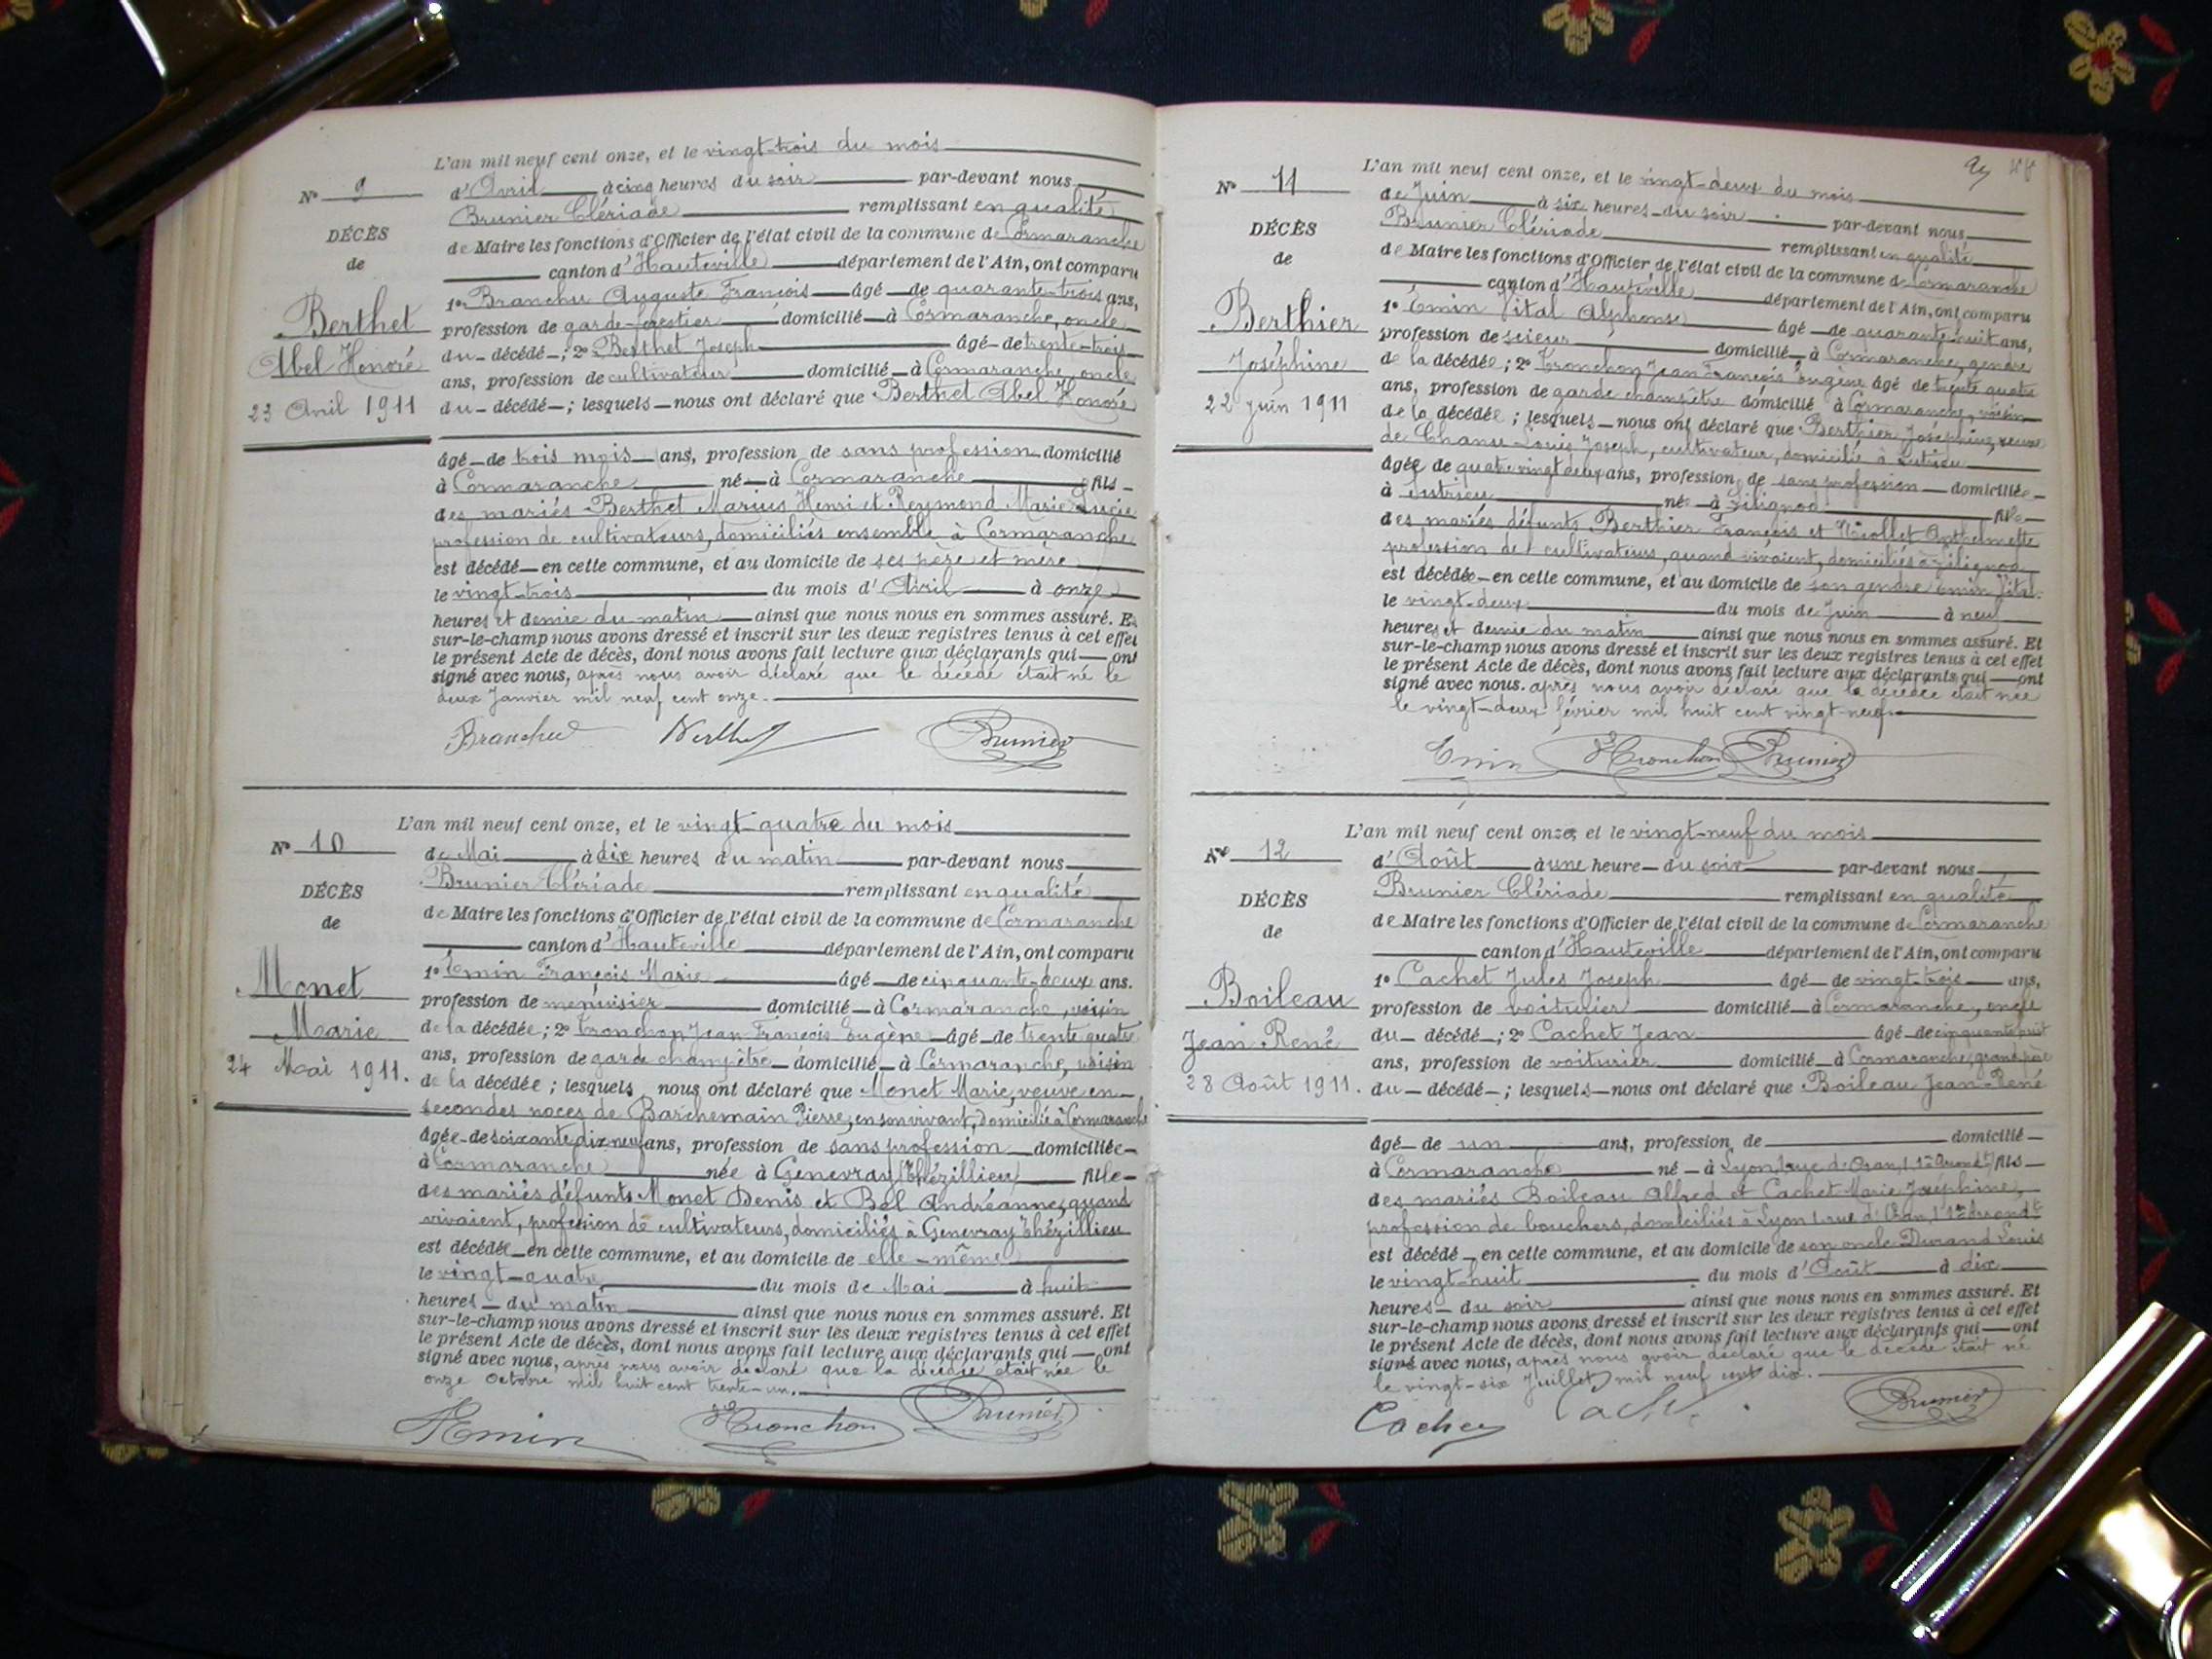 L'an mil neuf cent onze, et le vingt-trois du mois
N° 9
d'Avril à cinq heures du soir par-devant nous
Brunier Clériade remplissant en qualité
DÉCÈS
de Maire les fonctions d'Officier de l'état civil de la commune de Cormaranche
de
canton d'Hauteville département de l'Ain, ont comparu
1° Branchu Auguste François âgé de quarante-trois ans,
Berthet
profession de garde-forestier domicilié à Cormaranche, oncle
du décédé ; 2° Berthet Joseph âgé de trente-trois
Abel Honoré
ans, profession de cultivateur domicilié à Cormaranche, oncle
23 Avril 1911
du décédé ; lesquels nous ont déclaré que Berthet Abel Honoré
âgé de trois mois ans, profession de sans profession domicilié
à Cormaranche né à Cormaranche fils
des mariés Berthet Marius Henri et Reymond Marie Lucie
profession de cultivateurs, domiciliés ensemble à Cormaranche
est décédé en cette commune, et au domicile de ses père et mère
le vingt-trois du mois d'Avril à onze
heures et demie du matin ainsi que nous nous en sommes assuré. Et
sur-le-champ nous avons dressé et inscrit sur les deux registres tenus à cet effet
le présent Acte de décès, dont nous avons fait lecture aux déclarants qui ont
signé avec nous, après nous avoir déclaré que le décédé était né le
deux Janvier mil neuf cent onze.
Branchu Berthet Brunier
L'an mil neuf cent onze, et le vingt-quatre du mois
N° 10
de Mai à dix heures du matin par-devant nous
Brunier Clériade remplissant en qualité
DÉCÈS
de Maire les fonctions d'Officier de l'état civil de la commune de Cormaranche
de
canton d'Hauteville département de l'Ain, ont comparu
1° Emin François Marie âgé de cinquante-deux ans.
Monet
profession de menuisier domicilié à Cormaranche, voisin
Marie
de la décédée ; 2° Tronchon Jean François Eugène âgé de trente quatre
ans, profession de garde champêtre domicilié à Cormaranche, voisin
24 Mai 1911.
de la décédée ; lesquels nous ont déclaré que Monet Marie, veuve en
secondes noces de Barchemain Pierre, en son vivant, domicilié à Cormaranche
âgée de soixante dix neuf ans, profession de sans profession domiciliée
à Cormaranche née à Genevray (Thézillieu) fille
des mariés défunts Monet Denis et Bel Andréanne, quand
vivaient, profession de cultivateurs, domiciliés à Genevray Thézillieu
est décédée en cette commune, et au domicile de elle-même
le vingt-quatre du mois de Mai à huit
heures du matin ainsi que nous nous en sommes assuré. Et
sur-le-champ nous avons dressé et inscrit sur les deux registres tenus à cet effet
le présent Acte de décès, dont nous avons fait lecture aux déclarants qui ont
signé avec nous, après nous avoir déclaré que la décédée était née le
onze Octobre mil huit cent trente-un.
Emin Tronchon Brunier
L'an mil neuf cent onze, et le vingt-deux du mois
N° 11
de Juin à six heures du soir par-devant nous
Brunier Clériade remplissant en qualité
DÉCÈS
de Maire les fonctions d'Officier de l'état civil de la commune de Cormaranche
de
canton d'Hauteville département de l'Ain, ont comparu
1° Emin Vital Alphonse âgé de quarante-huit ans,
Berthier
profession de scieur domicilié à Cormaranche, gendre
Joséphine
de la décédée ; 2° Tronchon Jean François Eugène âgé de trente quatre
ans, profession de garde champêtre domicilié à Cormaranche, voisin
22 Juin 1911
de la décédée ; lesquels nous ont déclaré que Berthier Joséphine, veuve
de Chanu Louis Joseph, cultivateur, domicilié à Sutrieu
âgée de quatre vingt deux ans, profession de sans profession domiciliée
à Sutrieu née à Zilignod fille
des mariés défunts Berthier François et Anthelmette
profession de cultivateurs, quand vivaient, domiciliés à Zilignod
est décédée en cette commune, et au domicile de son gendre Emin Vital.
le vingt-deux du mois de Juin à neuf
heures et demie du matin ainsi que nous nous en sommes assuré. Et
sur-le-champ nous avons dressé et inscrit sur les deux registres tenus à cet effet
le présent Acte de décès, dont nous avons fait lecture aux déclarants qui ont
signé avec nous. après nous avoir déclaré que la décédée était née
le vingt-deux février mil huit cent vingt-neuf.
Emin Tronchon Brunier
L'an mil neuf cent onze, et le vingt-neuf du mois
N° 12
d'Août à une heure du soir par-devant nous
Brunier Clériade remplissant en qualité
DÉCÈS
de Maire les fonctions d'Officier de l'état civil de la commune de Cormaranche
de
canton d'Hauteville département de l'Ain, ont comparu
1° Cachet Jules Joseph âgé de vingt-trois ans,
Boileau
profession de voiturier domicilié à Cormaranche, oncle
Jean René
du décédé ; 2° Cachet Jean âgé de cinquante huit
ans, profession de voiturier domicilié à Cormaranche, grand père
28 Août 1911.
du décédé ; lesquels nous ont déclaré que Boileau Jean-René
âgé de un ans, profession de domicilié
à Cormaranche né à Lyon, 1 rue d'Oran, 1er Arrondt fils
des mariés Boileau Alfred et Cachet Marie Joséphine,
profession de bouchers, domiciliés à Lyon 1 rue d'Oran, 1er Arrondt
est décédé en cette commune, et au domicile de son oncle Durand Louis
le vingt-huit du mois d'Août à dix
heures du soir ainsi que nous nous en sommes assuré. Et
sur-le-champ nous avons dressé et inscrit sur les deux registres tenus à cet effet
le présent Acte de décès, dont nous avons fait lecture aux déclarants qui ont
signé avec nous, après nous avoir déclaré que le décédé était né
le vingt-six Juillet mil neuf cent dix.
Cachet Cachet Brunier